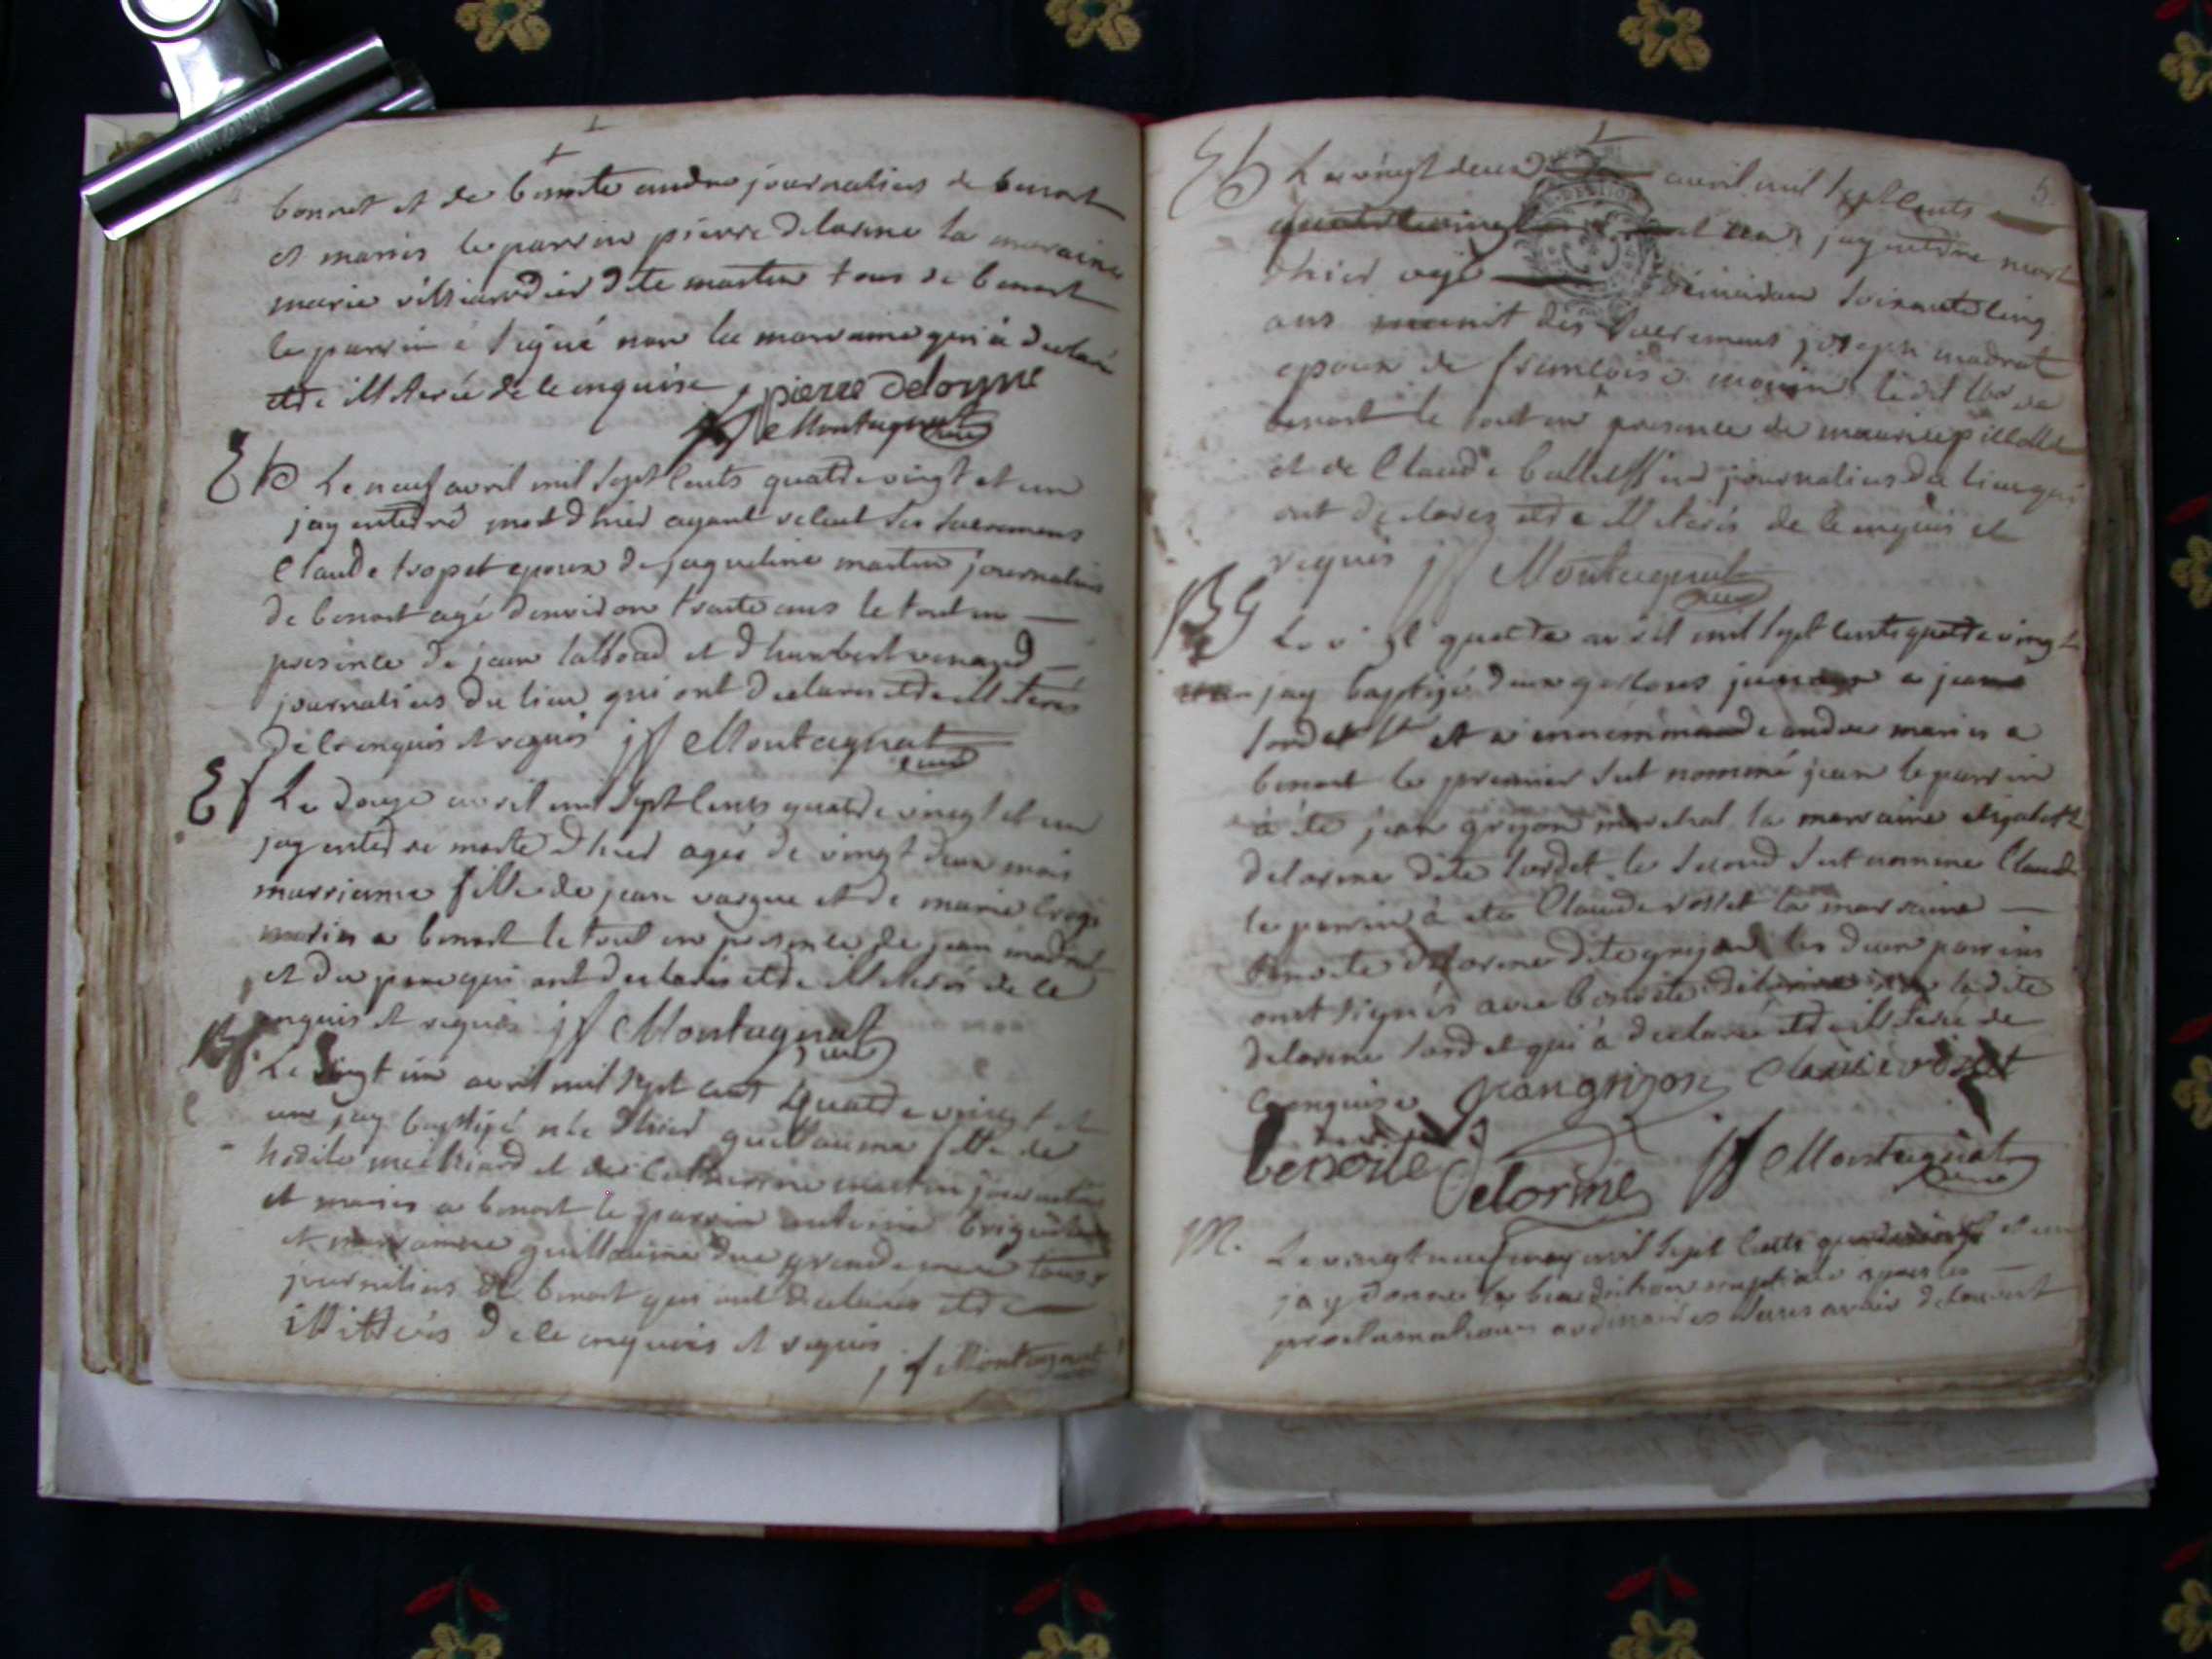 bonnet et de benoite andre journaliers de benost
et mariés le parrin pierre delorme la maraine
marie dite martin tous de benost
le parrin à signé non la marraine qui à declaré
etre illiterée de ce enquise pierre delorme
Montagnat curé
Eb Le neuf avril mil sept cents quatre vingt et un
jay enterré mort d'hier ayant receut ses sacremens
Claude tropet epoux de jaqueline martin journalier
de benost agé d'environ trente ans le tout en
presence de jean et d'humbert venard
journaliers du lieu qui ont declarés etre illiterés
de ce enquis et requis jf Montagnat curé
Ef Le douze avril mil sept cents quatre vingt et un
jay enterré morte d'hier agée de vingt deux mois
marrianne fille de jean vargue et de marie
mariés a benost le tout en presence de jean madrat
et du pere qui ont declarés etre illiterés de ce
enquis et requis jf Montagnat curé
Bf. Le vingt un avril mil sept cent quatre vingt et
un jay baptizé née d'hier guillauma fille de
et de Catherine martin journaliers
et mariés a benost le parrin antoine
et marrainne guillauma tous
journaliers de benost qui ont declarés etre
illiterés de ce enquis et requis
jf Montagnat
5
Eb Le vingt deux avril mil sept cents
quatre vingt et un jay enterré mort
d'hier agé d'environ soixante cinq
ans munit des sacremens joseph madrat
epoux de françoise de
benost le tout en presence de maurice pillolle
et de Claude journaliers du lieu qui
ont declarez etre illiterés de ce enquis et
requis jf Montagnat curé
BG Le vingt quatre avril mil sept cents quatre vingt
un jay baptizé deux garçons jumeaux a jean
sordet et a andre mariés a
benost le premier fut nommé jean le parrin
à été jean grizon marchal la marraine elizabeth
delorme dite sordet le second fut nommé Claude
le parrin à été Claude rosset la marraine
benoite delorme dite grizon les deux parrins
ont signés avec benoite delorme non ladite
delorme sordet qui à declaré etre illiterée de
ce enquise jean grizon claude rosset
benoite delorme jf Montagnat curé
M. Le vingt neuf may mil sept cents quatre vingt et un
jay donné la benediction nuptiale apres les
proclamations ordinaires sans avoir decouvert